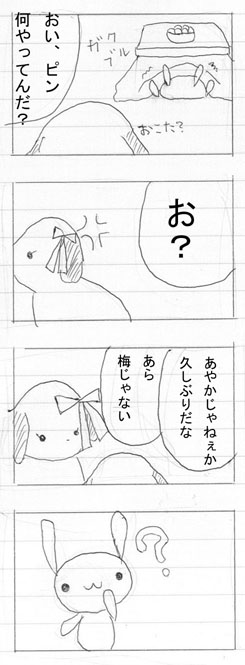 おい、ピン
何やってんだ？
ガクブル
おこた？
お？
あやかじゃねぇか
久しぶりだな
あら
梅じゃない
？